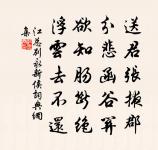 送君張掖郡
分悲函谷關
欲知腸斷絕
浮雲去不還
江总別永新侯詩典網
集